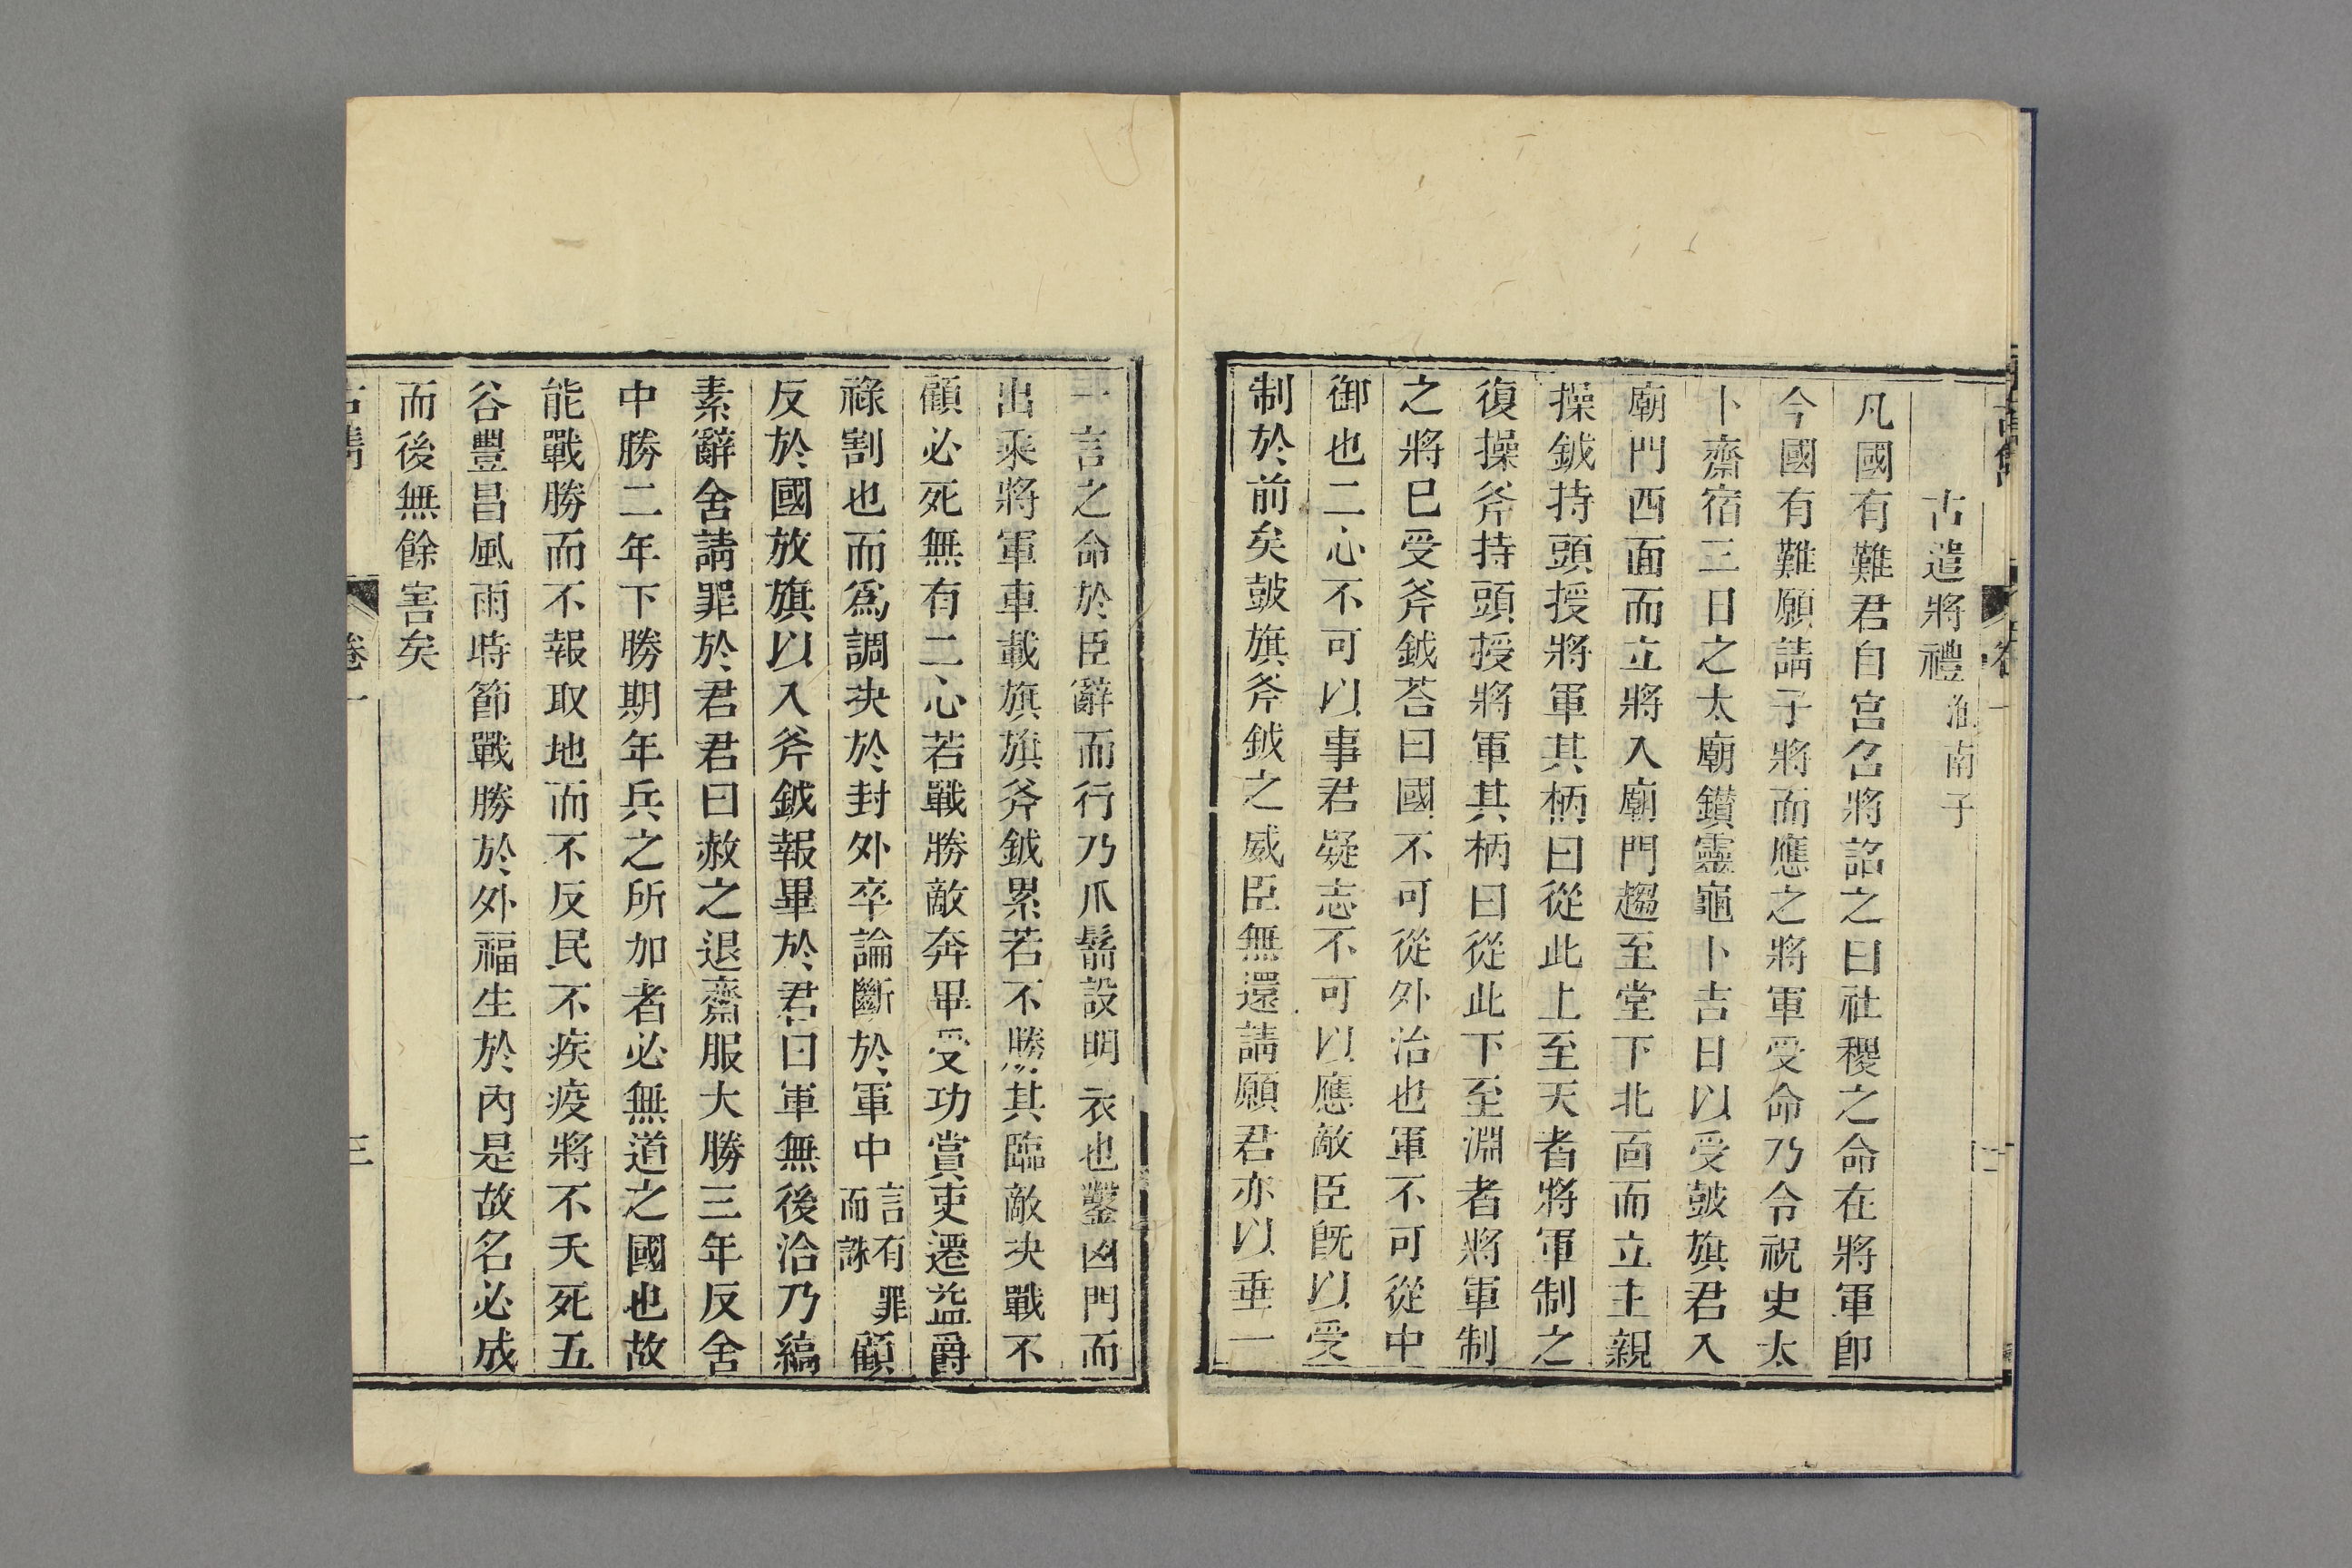 古遣將禮淮南子
凡國有難君自宮召將詔之曰社稷之命在將軍卽
今國有難願請子將而應之將軍受命乃令祝史太
卜齋宿三日之太廟鑽靈龜卜吉日以受鼓旗君入
廟門西面而立將入廟門趨至堂下北面而立主親
操鉞持頭授將軍其柄曰從此上至天者將軍制之
復操斧持頭授將軍其柄曰從此下至淵者將軍制
之將已受斧鉞荅曰國不可從外治也軍不可從中
御也二心不可以事君疑志不可以應敵臣旣以受
制於前矣鼓旗斧鉞之威臣無還請願君亦以垂一
一言之命於臣辭而行乃爪鬋設明衣也鑿凶門而
出乘將軍車載旗旗斧鉞累若不勝其臨敵決戰不
顧必死無有二心若戰勝敵奔畢受功賞吏遷益爵
祿割也而爲調決於封外卒論斷於軍中言有罪而誅顧
反於國放旗以入斧鉞報畢於君曰軍無後治乃縞
素辭舍請罪於君君曰赦之退齋服大勝三年反舍
中勝二年下勝期年兵之所加者必無道之國也故
能戰勝而不報取地而不反民不疾疫將不夭死五
谷豐昌風雨時節戰勝於外福生於內是故名必成
而後無餘害矣
卷一
三